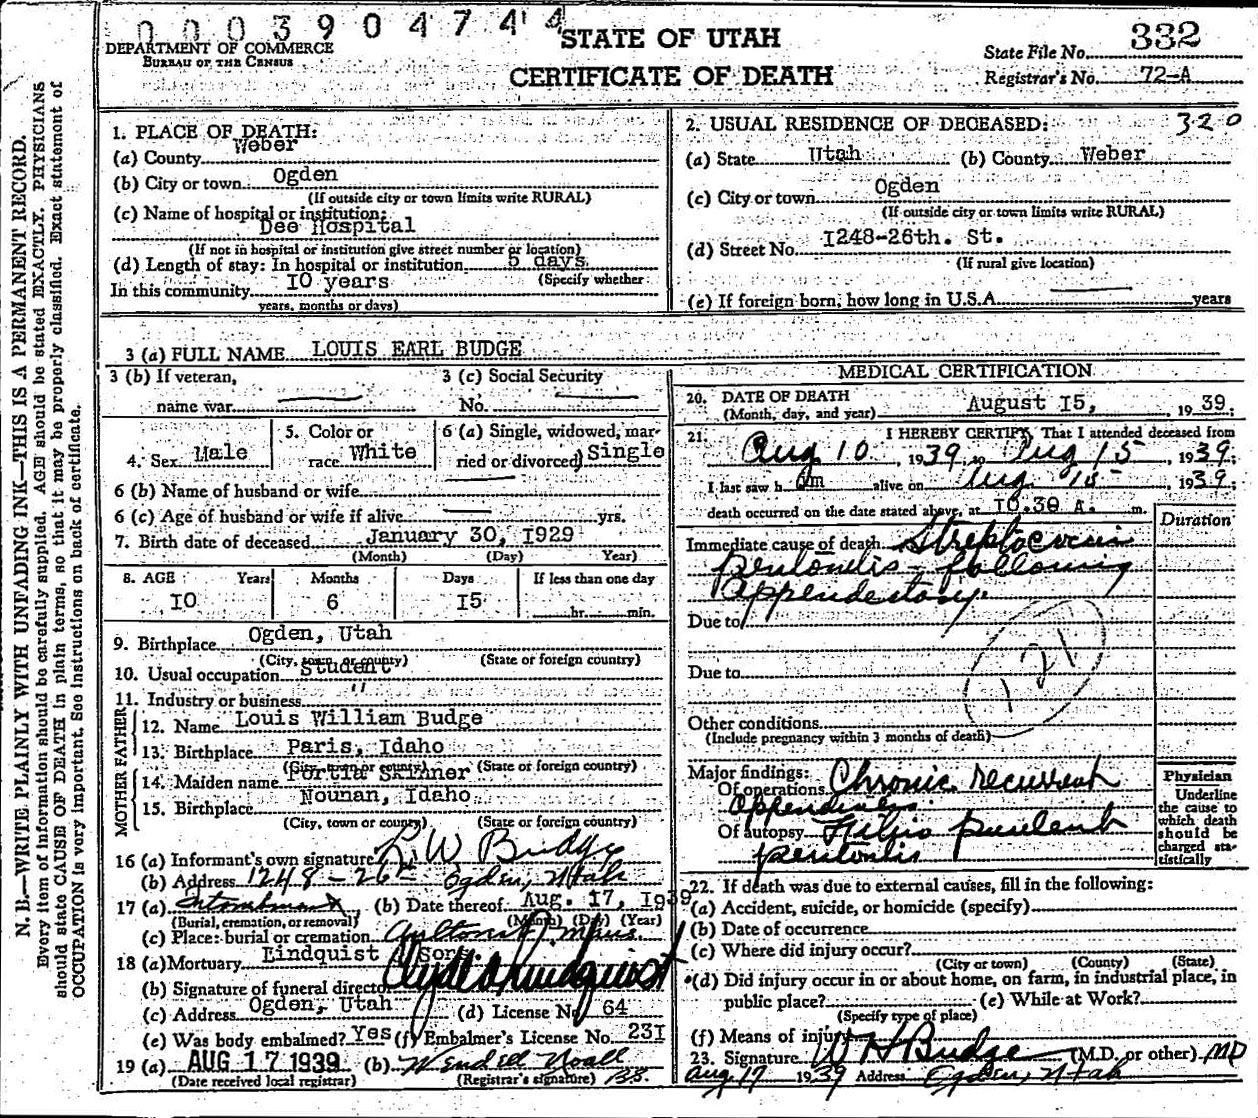 0003904744
DEPARTMENT OF COMMERCE
BUREAU OF THE CENSUS
STATE OF UTAH
CERTIFICATE OF DEATH
State File No. 332
Registrar's No. 72-A
N. B.—WRITE PLAINLY WITH UNFADING INK—THIS IS A PERMANENT RECORD.
Every item of information should be carefully supplied. AGE should be stated EXACTLY. PHYSICIANS
should state CAUSE OF DEATH in plain terms, so that it may be properly classified. Exact statement of
OCCUPATION is very important. See instructions on back of certificate.
1. PLACE OF DEATH:
(a) County Weber
(b) City or town Ogden
(If outside city or town limits write RURAL)
(c) Name of hospital or institution:
Dee Hospital
(If not in hospital or institution give street number or location)
(d) Length of stay: In hospital or institution 5 days
(Specify whether
In this community I0 years
years, months or days)
2. USUAL RESIDENCE OF DECEASED: 320
(a) State Utah (b) County Weber
(c) City or town Ogden
(If outside city or town limits write RURAL)
(d) Street No. I248-26th. St.
(If rural give location)
(e) If foreign born, how long in U.S.A. years
3 (a) FULL NAME LOUIS EARL BUDGE
3 (b) If veteran,
name war
3 (c) Social Security
No.
4. Sex Male
5. Color or
race White
6 (a) Single, widowed, mar-
ried or divorced) Single
6 (b) Name of husband or wife
6 (c) Age of husband or wife if alive yrs.
7. Birth date of deceased January 30, I929
(Month) (Day) Year)
8. AGE Years Months Days If less than one day
I0 6 I5 hr. min.
9. Birthplace Ogden, Utah
(City, town or county) (State or foreign country)
10. Usual occupation Student
11. Industry or business "
FATHER
12. Name Louis William Budge
13. Birthplace Paris, Idaho
(City, town or county) (State or foreign country)
MOTHER
14. Maiden name Portia Skinner
15. Birthplace Nounan, Idaho
(City, town or county) (State or foreign country)
16 (a) Informant's own signature L. W. Budge
(b) Address 1248-26th Ogden, Utah
17 (a) Entombment (b) Date thereof Aug. I7, I939
(Burial, cremation, or removal) (Month) (Day) (Year)
(c) Place: burial or cremation
18 (a) Mortuary Lindquist & Sons.
(b) Signature of funeral director Clyde Lindquist
(c) Address Ogden, Utah (d) License No. 64
(e) Was body embalmed? Yes (f) Embalmer's License No. 23I
19 (a) AUG 17 1939 (b) Wendell Noall
(Date received local registrar) (Registrar's signature) B.S.
MEDICAL CERTIFICATION
20. DATE OF DEATH
(Month, day, and year) August I5, , 19 39;
21. I HEREBY CERTIFY, That I attended deceased from
Aug 10, 1939, to Aug 15, 1939;
I last saw him alive on Aug 15, 1939;
death occurred on the date stated above, at I0.30 A. m.
Duration
Immediate cause of death Streptococcus
peritonitis - following
appendectomy.
Due to
Due to
121
Other conditions
(Include pregnancy within 3 months of death)
Major findings:
Of operations Chronic recurrent
appendicitis
Of autopsy Fibro purulent
peritonitis
Physician
Underline
the cause to
which death
should be
charged sta-
tistically
22. If death was due to external causes, fill in the following:
(a) Accident, suicide, or homicide (specify)
(b) Date of occurrence
(c) Where did injury occur?
(City or town) (County) (State)
(d) Did injury occur in or about home, on farm, in industrial place, in
public place? (e) While at Work?
(Specify type of place)
(f) Means of injury
23. Signature W H Budge (M.D. or other) MD
Aug 17 1939 Address Ogden, Utah